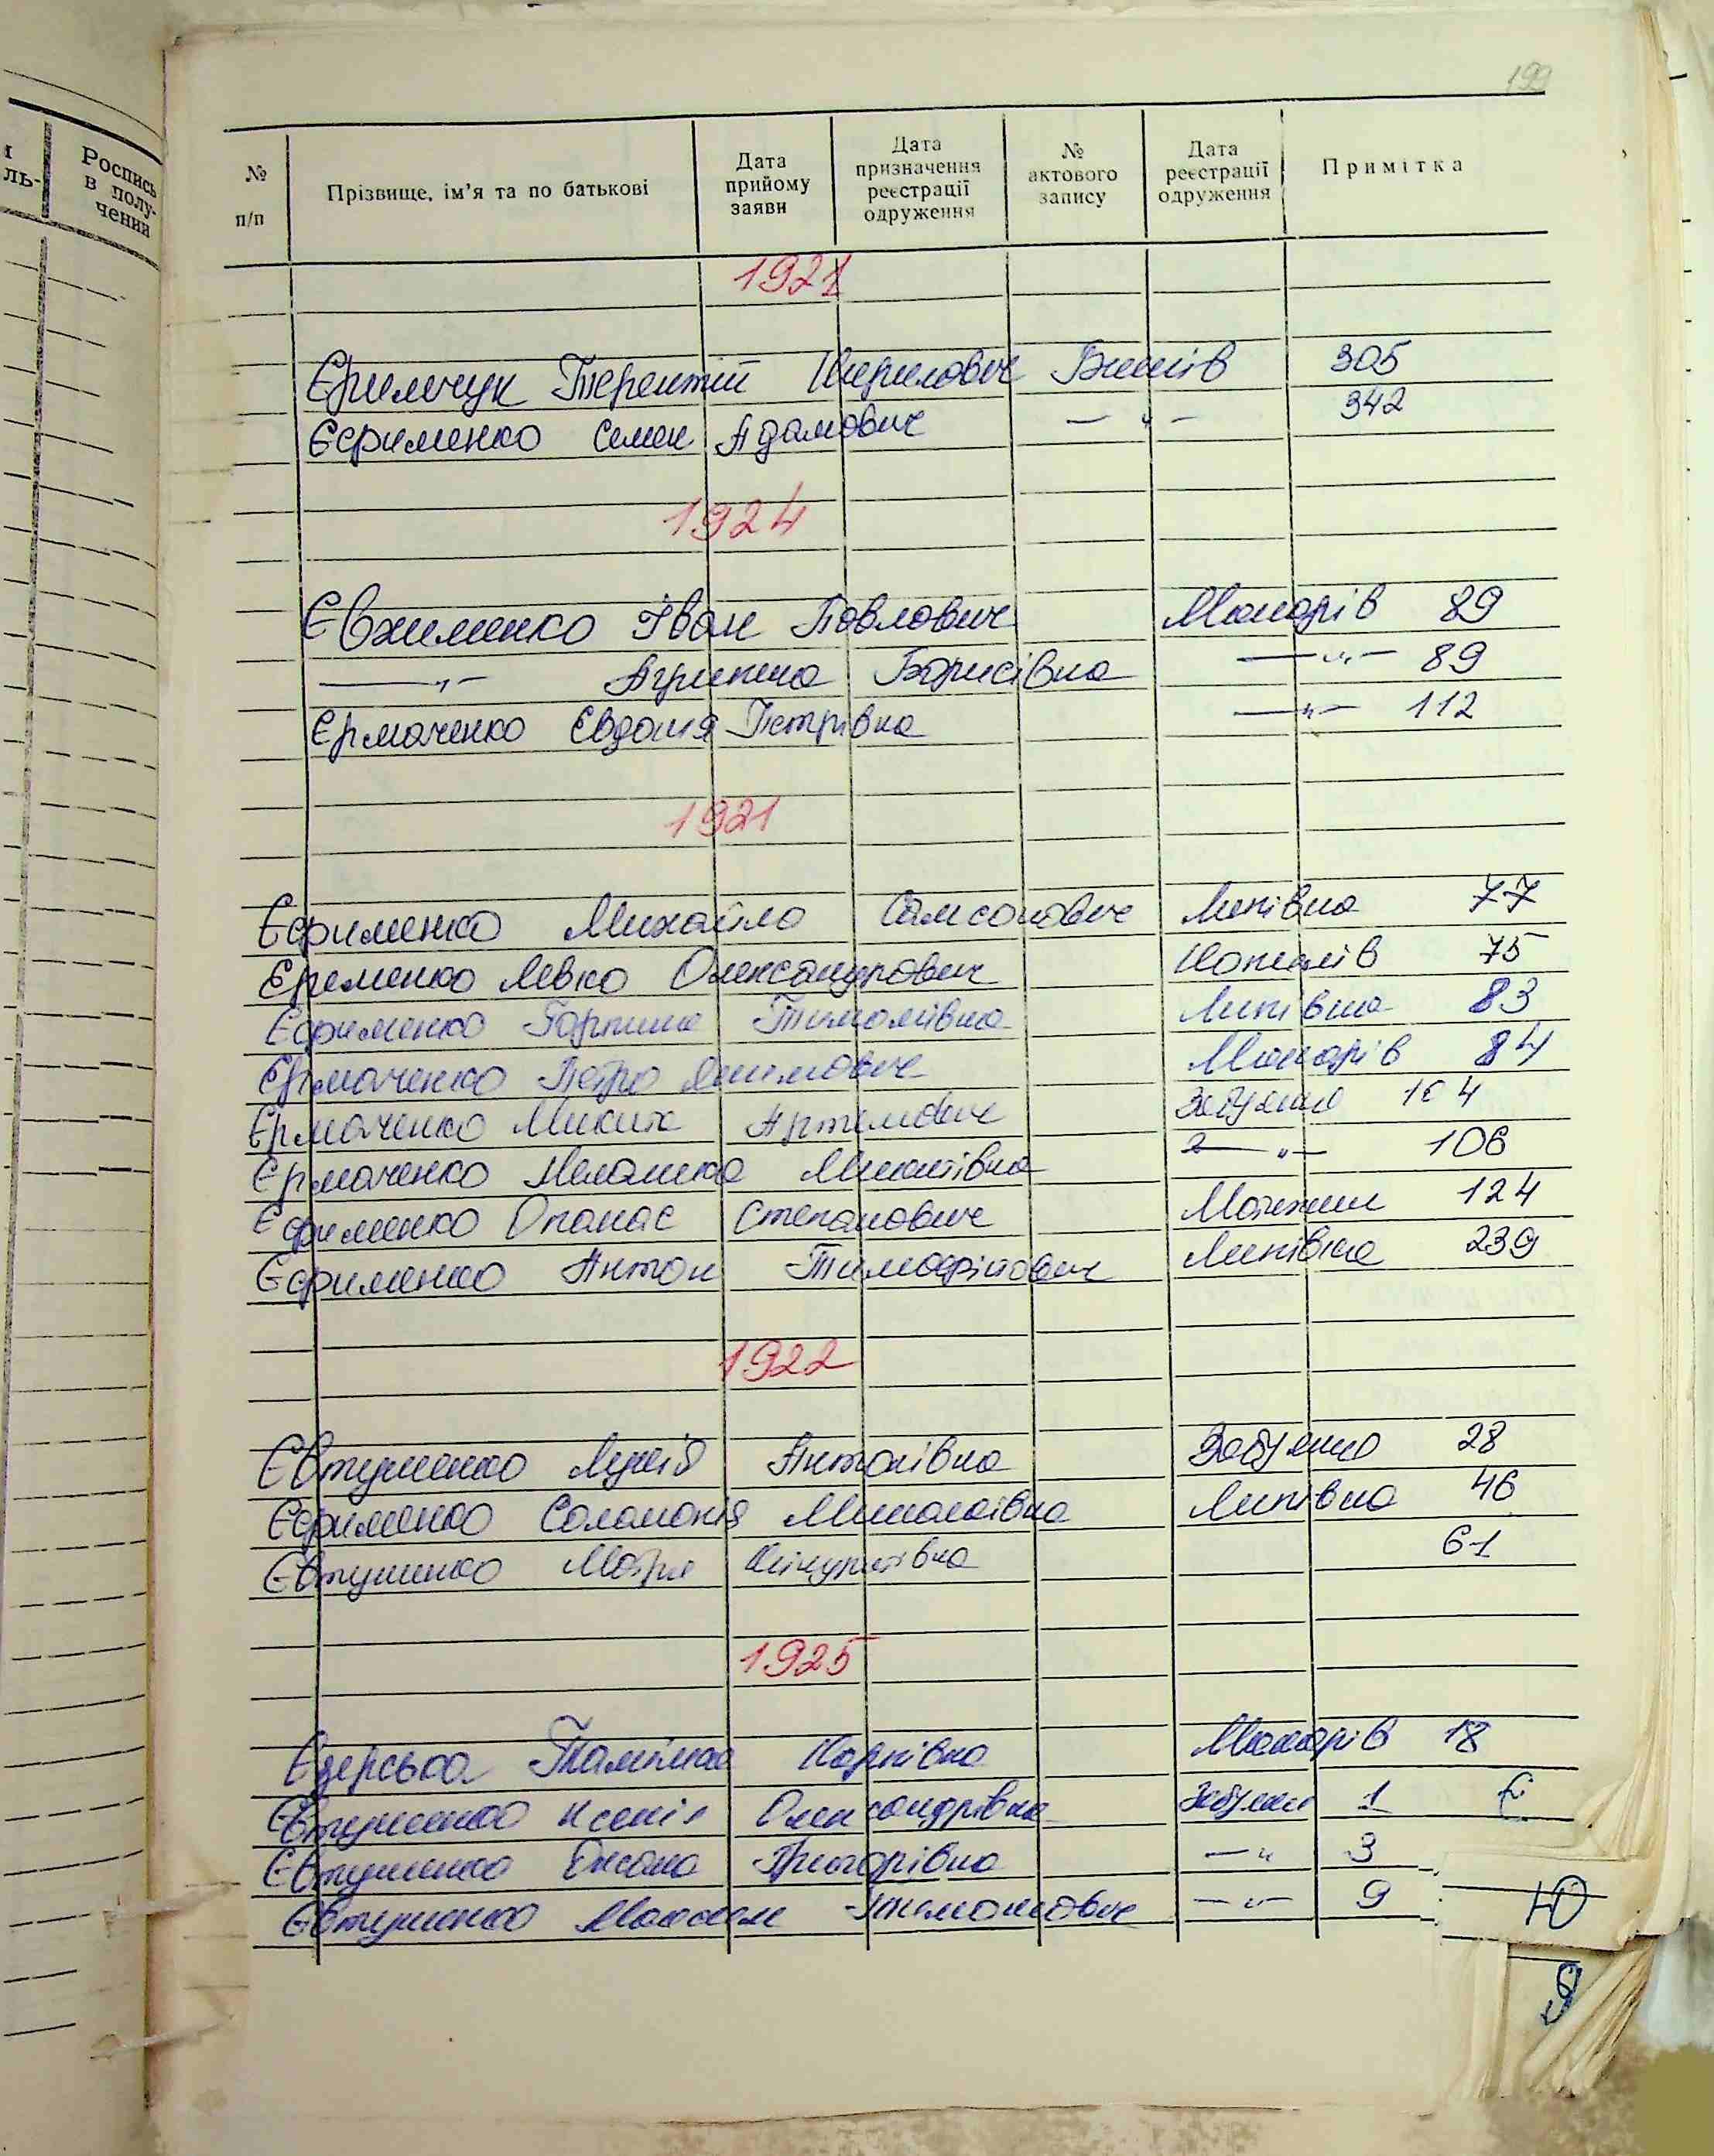 199
Роспись
в полу-
чении
ль-
№
п/п
Прізвище, ім'я та по батькові
Дата
прийому
заяви
Дата
призначення
реєстрації
одруження
№
актового
запису
Дата
реєстрації
одруження
Примітка
1921
Єрильчук Терентій Кирилович 305
Єфименко Семен Адамович — " — 342
1924
Євхименко Іван Павлович Макарів 89
— " — Агрипина Борисівна — " — 89
Єрмаченко Євдокія Петрівна — " — 112
1921
Єфименко Михайло Самсонович Липівка 77
Єременко Левко Олександрович Копилів 75
Єфименко Горпина Липівка 83
Єрмаченко Петро Якимович Макарів 84
Єрмаченко Микита Артемович Забуяння 104
Єрмаченко Меланка Микитівна — " — 106
Єфименко Опанас Степанович Мотижин 124
Єфименко Антон Тимофійович Липівка 239
1922
Євтушенко Лукія Антонівна Забуяння 28
Єфименко Соломонія Миколаївна Липівка 46
Євтушенко Мотря 61
1925
Єзерська Карпівна Макарів 18
Євтушенко Ксенія Олександрівна Забуяння 1 Є
Євтушенко Оксана Григорівна — " 3
Євтушенко Максим — " — 9
Ю
Я